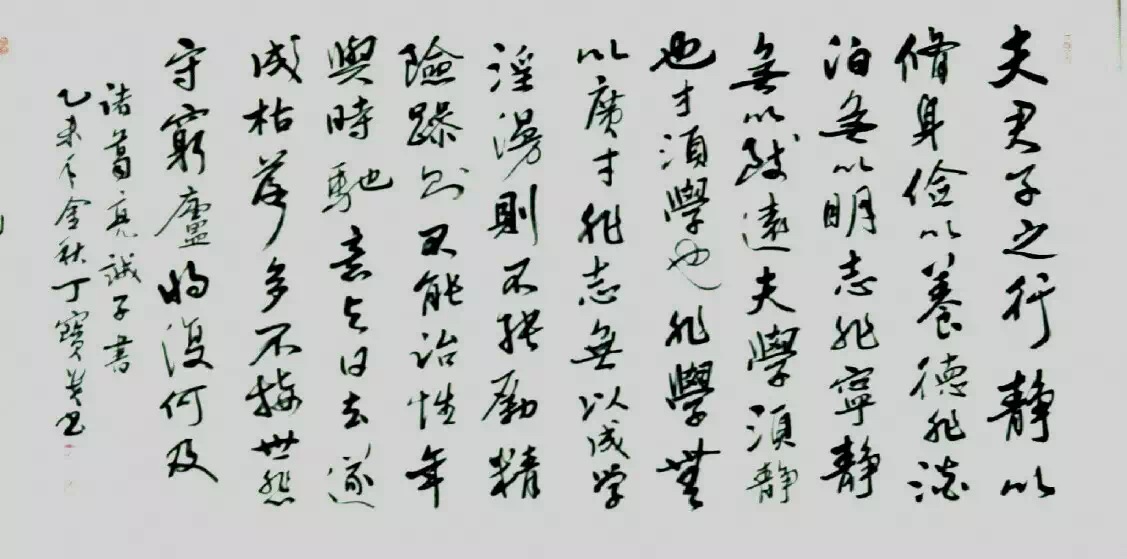 夫君子之行静以
脩身儉以養德非澹
泊無以明志非寧静
無以致遠夫學須静
也才須學也非學無
以廣才非志無以成学
淫漫則不能勵精
險躁则不能治性年
與時馳意与日去遂
成枯落多不接世悲
守窮廬將復何及
諸葛亮誡子書
乙未年金秋丁寶书